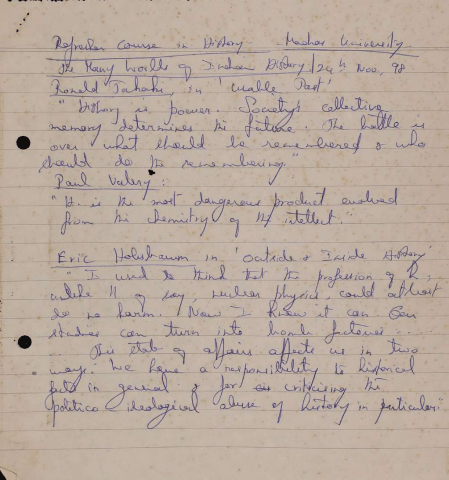 Refresher Course in History Madras University
The Many Worlds of Indian History / 24th Nov, 98
Ronald Takaki, in 'Usable Past'
"History is power. Society's collective
memory determines the future. The battle is
over what should be remembered & who
should do the remembering."
Paul Valery:
"It is the most dangerous product evolved
from the chemistry of the intellect."
Eric Hobsbawm in 'Outside & Inside History'
"I used to think that the profession of H,
unlike of say, nuclear physics, could at least
do no harm. Now I know it can. Our
studies can turn into bomb factories ...
This state of affairs affects us in two
ways. We have a responsibility to historical
facts in general & for criticising the
politico ideological abuse of history in particular."